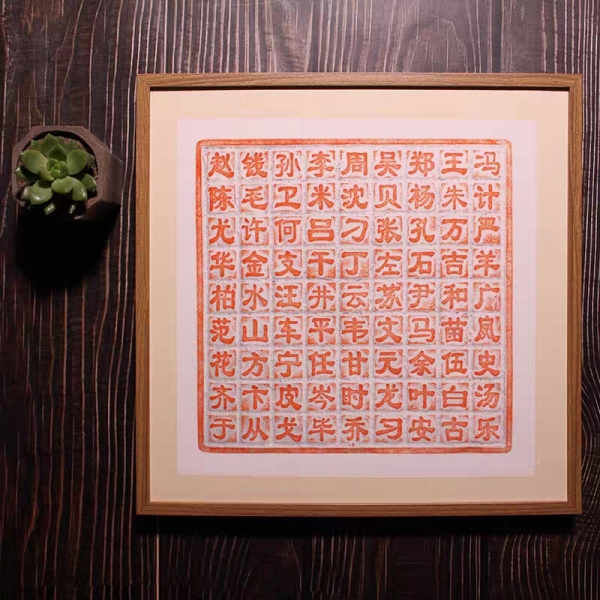 赵钱孙李周吴郑王冯
陈毛卫米沈贝杨朱计
尤许何吕刁张孔万严
华金支干丁左石吉羊
柏水汪井云苏尹和广
范山车平韦文马苗凤
花方宁任甘元余伍史
齐卞皮岑时龙叶白汤
于从戈毕乔习安古乐